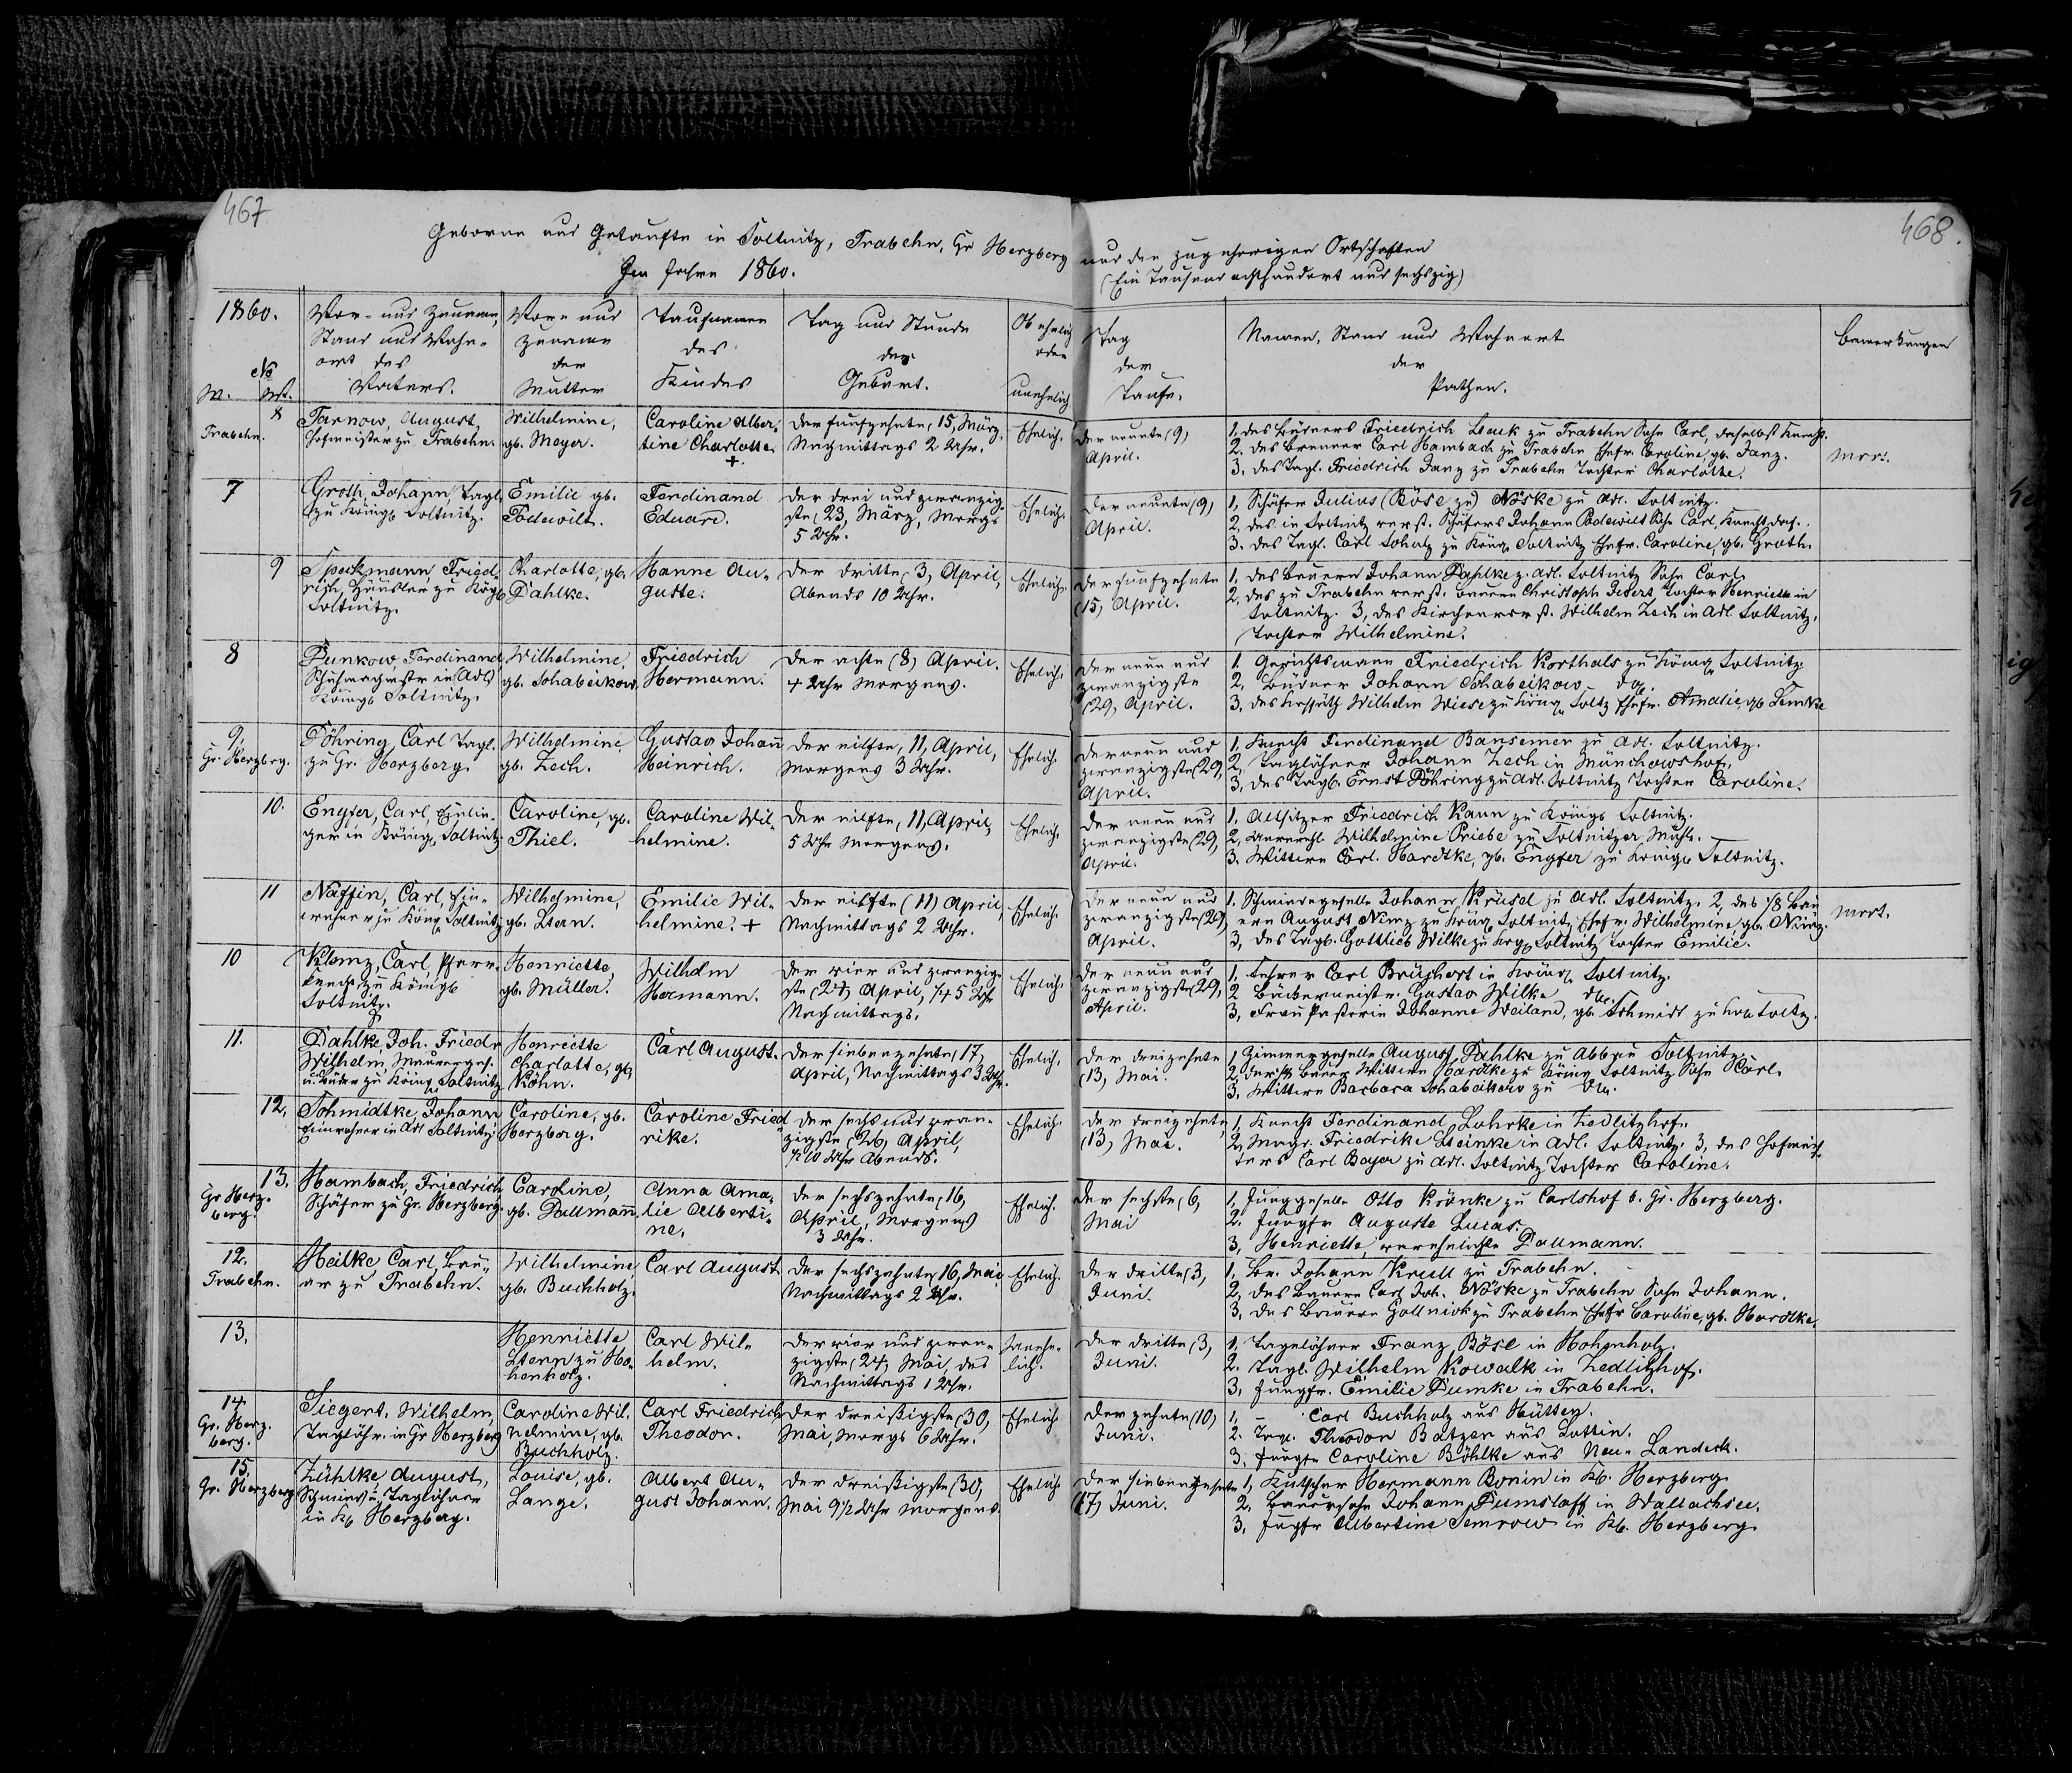 467
468.
Geborne und Getaufte in Soltnitz, Trabehn, Gr Herzberg und den zugehörigen Ortschaften
Im Jahre 1860.
(Ein Tausend achthundert und sechszig)
1860.
No
M. Wt.
Vor- und Zuname,
Stand und Wohn-
ort des
Vaters.
Vor- und
Zuname
der
Mutter
Taufnamen
des
Kindes
Tag und Stunde
der
Geburt.
Ob ehelich
oder
unehelich
Tag
der
Taufe.
Namen, Stand und Wohnort
der
Pathen.
Bemerkungen
8
Trabehn.
Tarnow, August,
Hofmeister zu Trabehn.
Wilhelmine,
gb. Meyer.
Caroline Alber-
tine Charlotte.
+
Der funfzehnte, 15, März,
Nachmittags 2 Uhr.
Ehelich.
Der neunte (9)
April.
1. des Büdners Friedrich Leuk zu Trabehn Sohn Carl, daselbst Knecht.
2. des Brenner Carl Hambach zu Trabehn Ehefr. Caroline, gb. Janz.
3. des Tagl. Friedrich Janz zu Trabehn Tochter Charlotte.
mort.
7
Groth, Johann, Tagl.
zu Königl. Soltnitz.
Emilie gb.
Podewils.
Ferdinand
Eduard.
Der drei und zwanzig-
ste (23, März, Morgs
5 Uhr.
Ehelich.
Der neunte (9)
April.
1, Schäfer Julius (Böse zu) Nöske zu Adl. Soltnitz.
2, des in Soltnitz verst. Schäfers Johann Podewils Sohn Carl, Knecht das.
3. des Tagl. Carl Schulz zu König. Soltnitz Ehefr. Caroline, gb. Groth.
9
Speckmann, Fried-
rich, Häusler zu Kögl
Soltnitz.
Charlotte, gb.
Dahlke.
Hanne Au-
guste.
Der dritte (3, April,
Abends 10 Uhr.
Ehelich.
Der funfzehnte
(15) April.
1. des Bauern Johann Dahlke z. Adl. Soltnitz Sohn Carl.
2. des zu Trabehn verst. Bauern Christoph Tetert Tochter Henriette in
Soltnitz. 3, des Kirchenvorst. Wilhelm Zech in Adl. Soltnitz,
Tochter Wilhelmine.
8
Dunkow, Ferdinand,
Schuhmachmstr in (Adl)
Königl. Soltnitz.
Wilhelmine,
gb. Schabeikow.
Friedrich
Hermann.
Der achte (8) April.
4 Uhr Morgens.
Ehelich.
Der neun und
zwanzigste
(29, April.
1. Gerichtsmann Friedrich Korthals zu König. Soltnitz.
2, Büdner Johann Schabeikow do.
3, des Wilhelm Wiese zu König. Soltz Ehefr. Amalie, gb Lemke
9,
Gr. Herzberg.
Döhring, Carl Tagl.
zu Gr. Herzberg.
Wilhelmine,
gb. Zech.
Gustav Johann
Heinrich.
Der eilfte, 11, April,
Morgens 3 Uhr.
Ehelich.
Der neun und
zwanzigste (29,
April.
1. Knecht Ferdinand Bansemer zu Adl. Soltnitz.
2, Taglöhner Johann Zech in Münchowshof.
3, des Tagl. Ernst Döhring zu Adl. Soltnitz Tochter Caroline.
10.
Engfer, Carl, Einlie-
ger in König. Soltnitz
Caroline, gb.
Thiel.
Caroline Wil-
helmine.
Der eilfte, 11, April,
5 Uhr Morgens.
Ehelich.
Der neun und
zwanzigste (29,
April.
1. Altsitzer Friedrich Kann zu Königl. Soltnitz.
2, Unverehl. Wilhelmine Priebe zu Soltnitzer Mühle.
3. Wittwe Carl. Hardtke, gb. Engfer zu Königl. Soltnitz.
11
Naffin, Carl, Ein-
wohner zu König Soltnitz
Wilhelmine,
gb. Stern.
Emilie Wil-
helmine. +
Der eilfte (11) April,
Nachmittags 2 Uhr.
Ehelich.
Der neun und
zwanzigste (29,
April.
1. Schmiedegeselle Johann Krüsel zu Adl. Soltnitz. 2, des 1/8 Bau
ern August Nimz zu König Soltnitz Ehefr. Wilhelmine, gb. Nimz.
3, des Tagl. Gottlieb Wilke zu Soltnitz Tochter Emilie.
mort.
10
Klemz, Carl, Pfarr-
knecht zu Königl
Soltnitz.
Henriette,
gb. Müller.
Wilhelm
Hermann.
Der vier und zwanzig-
ste (24, April, 1/4 5 Uhr
Nachmittags.
Ehelich.
Der neun und
zwanzigste (29,
April.
1, Lehrer Carl Brüschert in König. Soltnitz.
2 Bäckermeister Gustav Wilke do.
3, Frau Pastorin Johanne Weiland, gb. Schmidt zu Soltz.
11.
Dahlke, Joh. Friedr
Wilhelm, Maurerges.
u. Büdner zu König Soltnitz
Henriette
Charlotte, gb.
Köhn.
Carl August.
Der siebenzehnte, 17,
April, Nachmittags 3 Uhr.
Ehelich.
Der dreizehnte
(13, Mai.
1, Zimmergeselle August Dahlke zu Abbau Soltnitz.
2, der Bauer Wittwe Hardtke zu König Soltnitz Sohn Carl.
3, Wittwe Barbara Schabeikow zu do.
12,
Schmidtke, Johann,
Einwohner in Adl Soltnitz
Caroline, gb.
Herzberg.
Caroline Fried
rike.
Der sechs und zwan-
zigste (26) April,
1/2 10 Uhr Abends.
Ehelich.
Der dreizehnte
(13, Mai.
1, Knecht Ferdinand Lohrke in Zedlitzhof.
2, Magd Friedrike Steinke in Adl. Soltnitz. 3, des Hofmeis-
ters Carl Bayer zu Adl. Soltnitz Tochter Caroline.
13.
Gr Herz-
berg.
Hambach, Friedrich
Schäfer zu Gr. Herzberg.
Caroline,
gb. Dallmann.
Anna Ama-
lie Alberti-
ne.
Der sechszehnte, 16,
April, Morgens
3 Uhr.
Ehelich.
Der sechste (6,
Mai
1, Junggeselle Otto Krönke zu Carlshof b. Gr. Herzberg.
2. Jungfr Auguste Lucas.
3, Henriette, verehelichte Dallmann.
12.
Trabehn.
Heilke, Carl, Bau-
er zu Trabehn.
Wilhelmine,
gb. Buchholz.
Carl August.
Der sechszehnte, 16, Mai,
Nachmittags 2 Uhr.
Ehelich.
Der dritte (3,
Juni.
1, Br. Johann Krull zu Trabehn.
2, des Bauern Carl Joh. Nöske zu Trabehn Sohn Johann.
3, des Bauern Gollnick zu Trabehn Ehefr Caroline, gb. Hardtke.
13,
Henriette
Stern zu Ho-
henholz.
Carl Wil-
helm.
Der vier und zwan-
zigste (24, Mai, des
Nachmittags 1 Uhr.
Unehe-
lich.
Der dritte (3,
Juni.
1. Tagelöhner Franz Böse in Hohenholz.
2. Tagl. Wilhelm Kowalk in Zedlitzhof.
3, Jungfr. Emilie Dumke in Trabehn.
14.
Gr. Herz-
berg.
Siegert, Wilhelm,
Taglöhr. in Gr Herzberg
Caroline Wil-
helmine, gb.
Buchholz.
Carl Friedrich
Theodor.
Der dreißigste (30,
Mai, Morgs 6 Uhr.
Ehelich
Der zehnte (10)
Juni.
1, – Carl Buchholz aus Hütten.
2. Theodor Batzer aus Lottin.
3. Jungfr Caroline Böhlke aus Neu-Landeck.
15,
Gr. Herzberg
Zühlke August,
Schmied u. Taglöhner
in Kl. Herzberg.
Louise, gb.
Lange.
Albert Au-
gust Johann.
Der dreißigste (30,
Mai 9 1/2 Uhr Morgens.
Ehelich
Der siebenzehnte
(17) Juni.
1, Kutscher Hermann Bonin in Kl. Herzberg.
2, Bauersohn Johann Dumstaff in Wallachsee.
3, Jungfr Albertine Semrow in Kl. Herzberg.